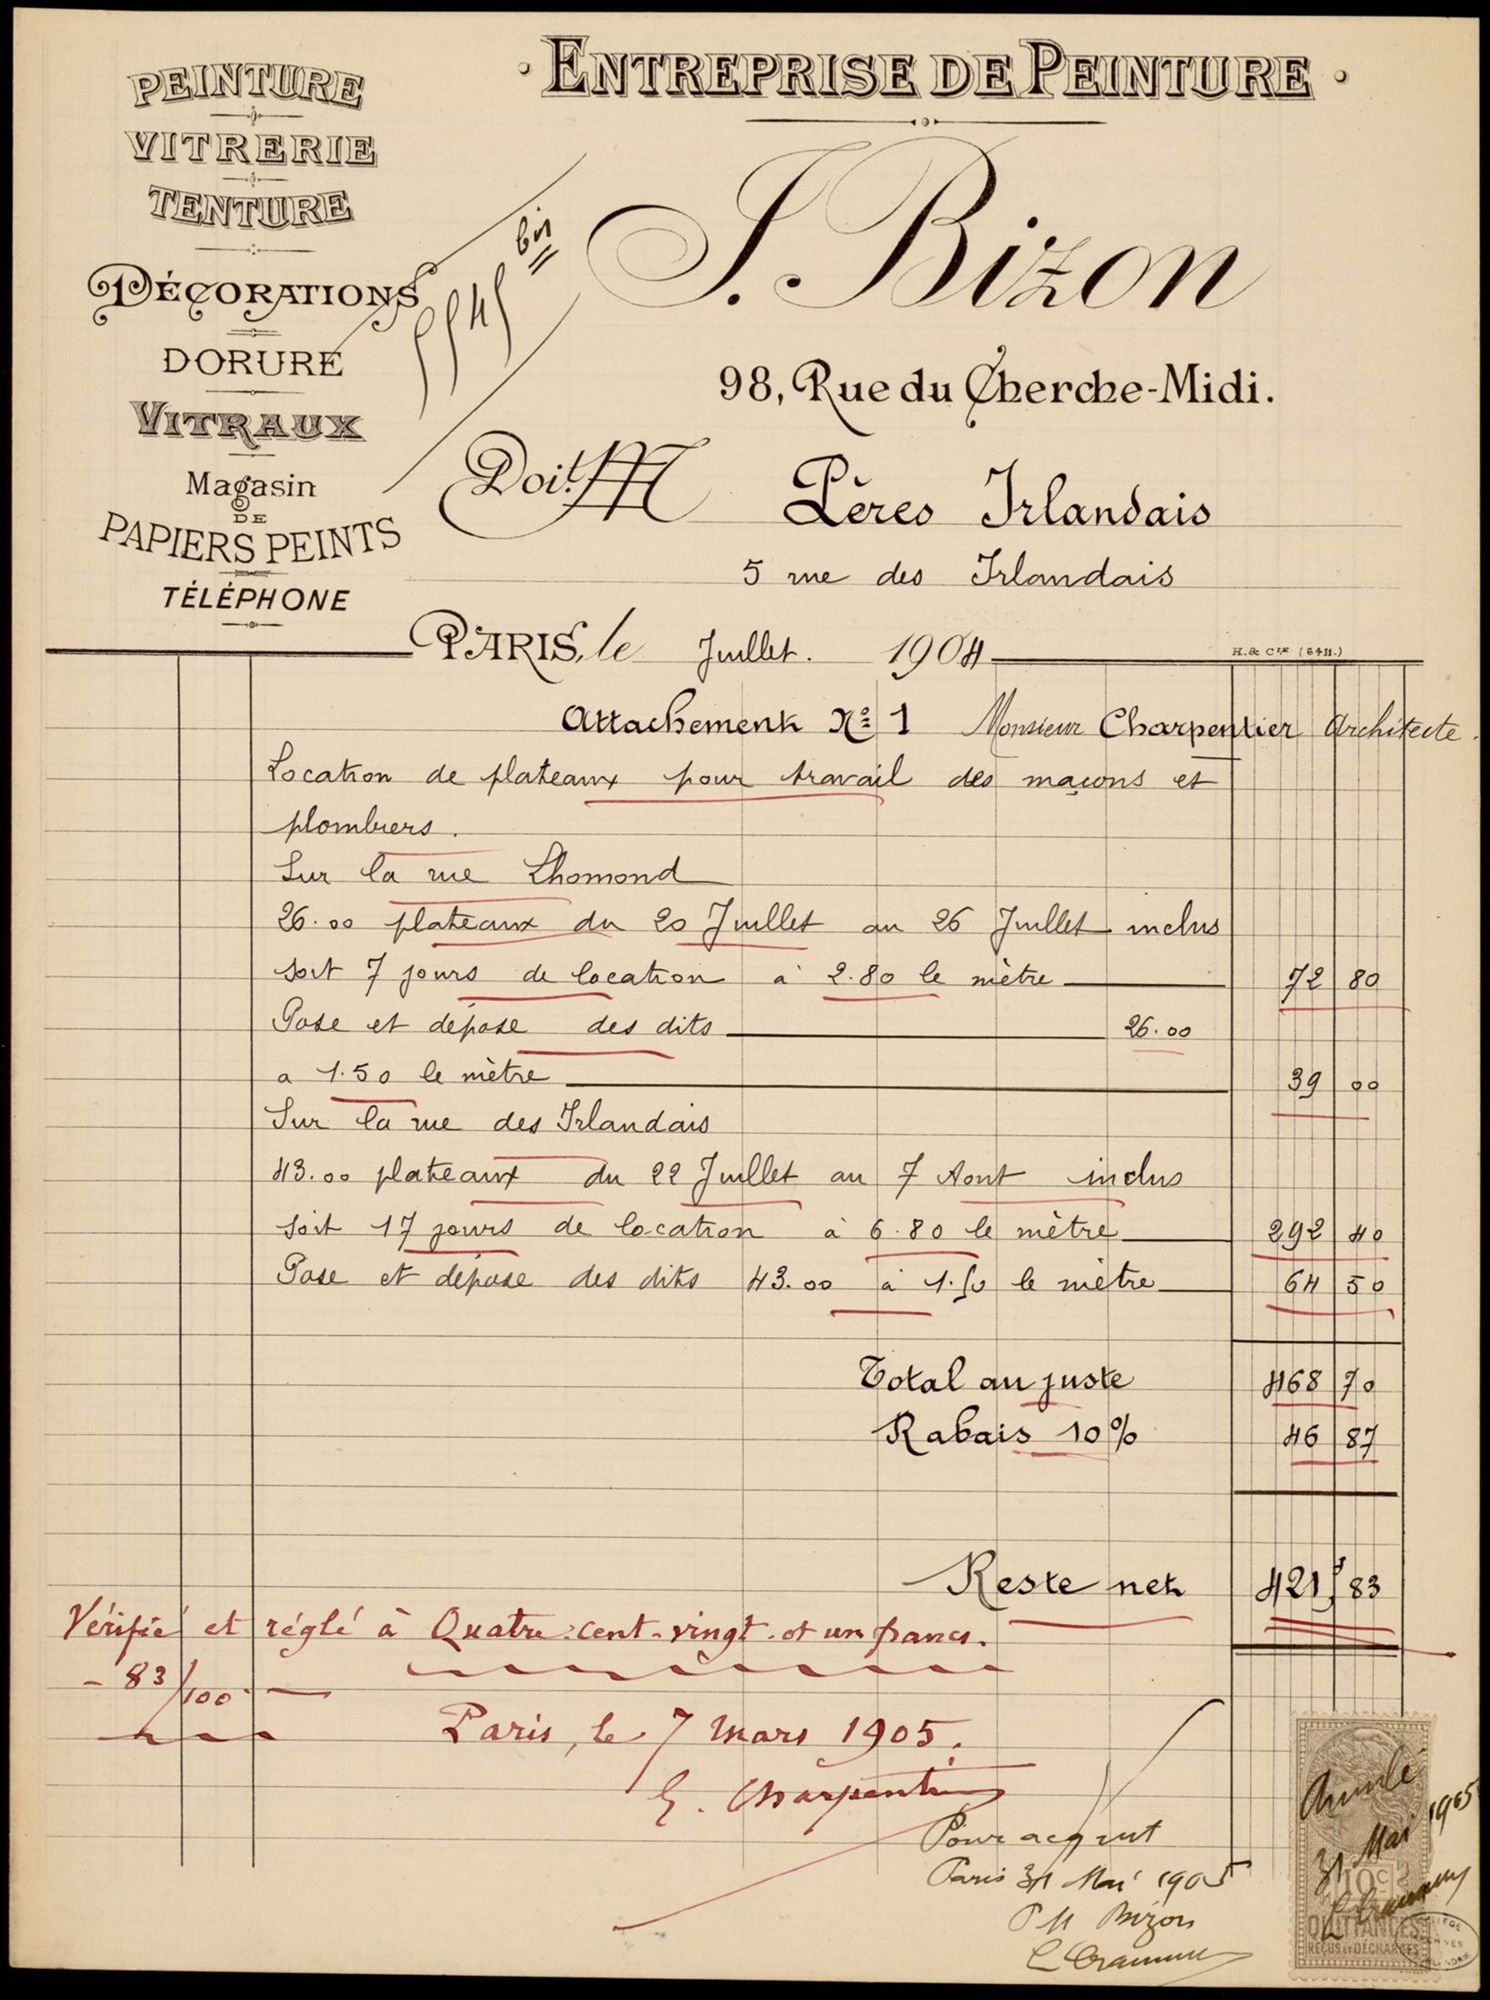 PEINTURE
VITRERIE
TENTURE
DÉCORATIONS
DORURE
VITRAUX
Magasin
DE
PAPIERS PEINTS
TÉLÉPHONE
· ENTREPRISE DE PEINTURE ·
J. Bizon
98, Rue du Cherche-Midi.
5545 bis
Doit M Pères Irlandais
5 rue des Irlandais
PARIS, le Juillet. 1904
H. & Cie (6411.)
Attachement No 1 Monsieur Charpentier Architecte.
Location de plateaux pour travail des maçons et
plombiers.
Sur la rue Lhomond
26.00 plateaux du 20 Juillet au 26 Juillet inclus
soit 7 jours de location à 2.80 le mètre 72 80
Pose et dépose des dits 26.00
a 1.50 le mètre 39 00
Sur la rue des Irlandais
43.00 plateaux du 22 Juillet au 7 Aout inclus
soit 17 jours de location à 6.80 le mètre 292 40
Pose et dépose des dits 43.00 à 1.50 le mètre 64 50
Total au juste 468 70
Rabais 10% 46 87
Reste net 421f 83
Vérifié et réglé à Quatre-cent-vingt-et un francs.
- 83/100 -
Paris, le 7 mars 1905.
G. Charpentier
Pour acquit
Paris 31 Mai 1905
Bizon
Annulé
31 Mai 1905
10c
QUITTANCES
REÇUS ET DÉCHARGES